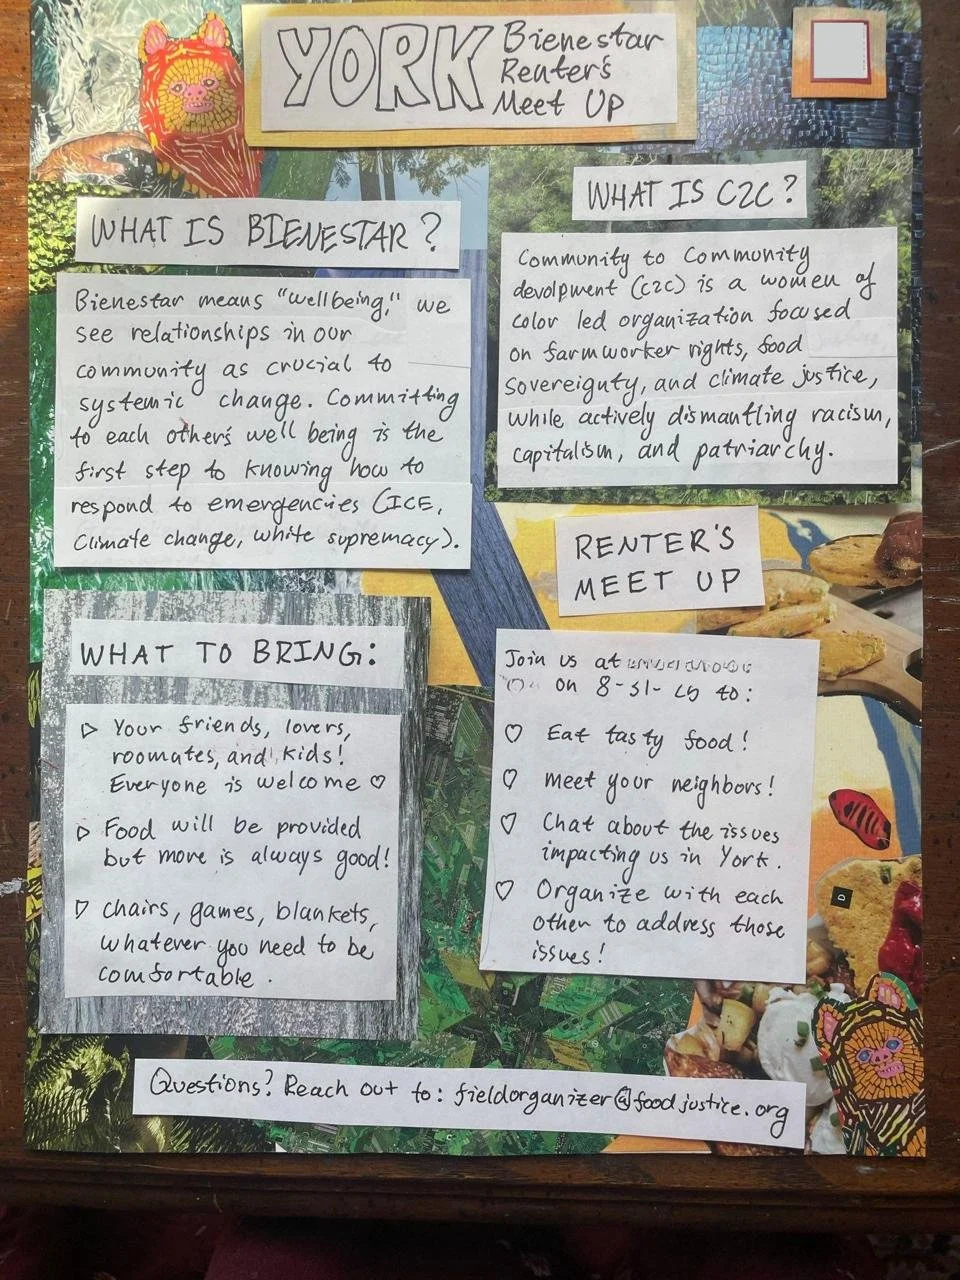 YORK
Bienestar
Renter's
Meet Up
WHAT IS BIENESTAR?
Bienestar means "wellbeing," we
see relationships in our
community as crucial to
systemic change. Committing
to each other's well being is the
first step to knowing how to
respond to emergencies (ICE,
Climate change, white supremacy).
WHAT IS C2C?
Community to Community
devolpment (C2C) is a women of
color led organization focused
on farmworker rights, food
sovereignty, and climate justice,
while actively dismantling racism,
capitalism, and patriarchy.
WHAT TO BRING:
Your friends, lovers,
roomates, and kids!
Everyone is welcome ♡
Food will be provided
but more is always good!
chairs, games, blankets,
whatever you need to be
comfortable.
RENTER'S
MEET UP
Join us at
on 8-31- to:
♡ Eat tasty food!
♡ meet your neighbors!
♡ Chat about the issues
impacting us in York.
♡ Organize with each
other to address those
issues!
Questions? Reach out to: fieldorganizer@foodjustice.org